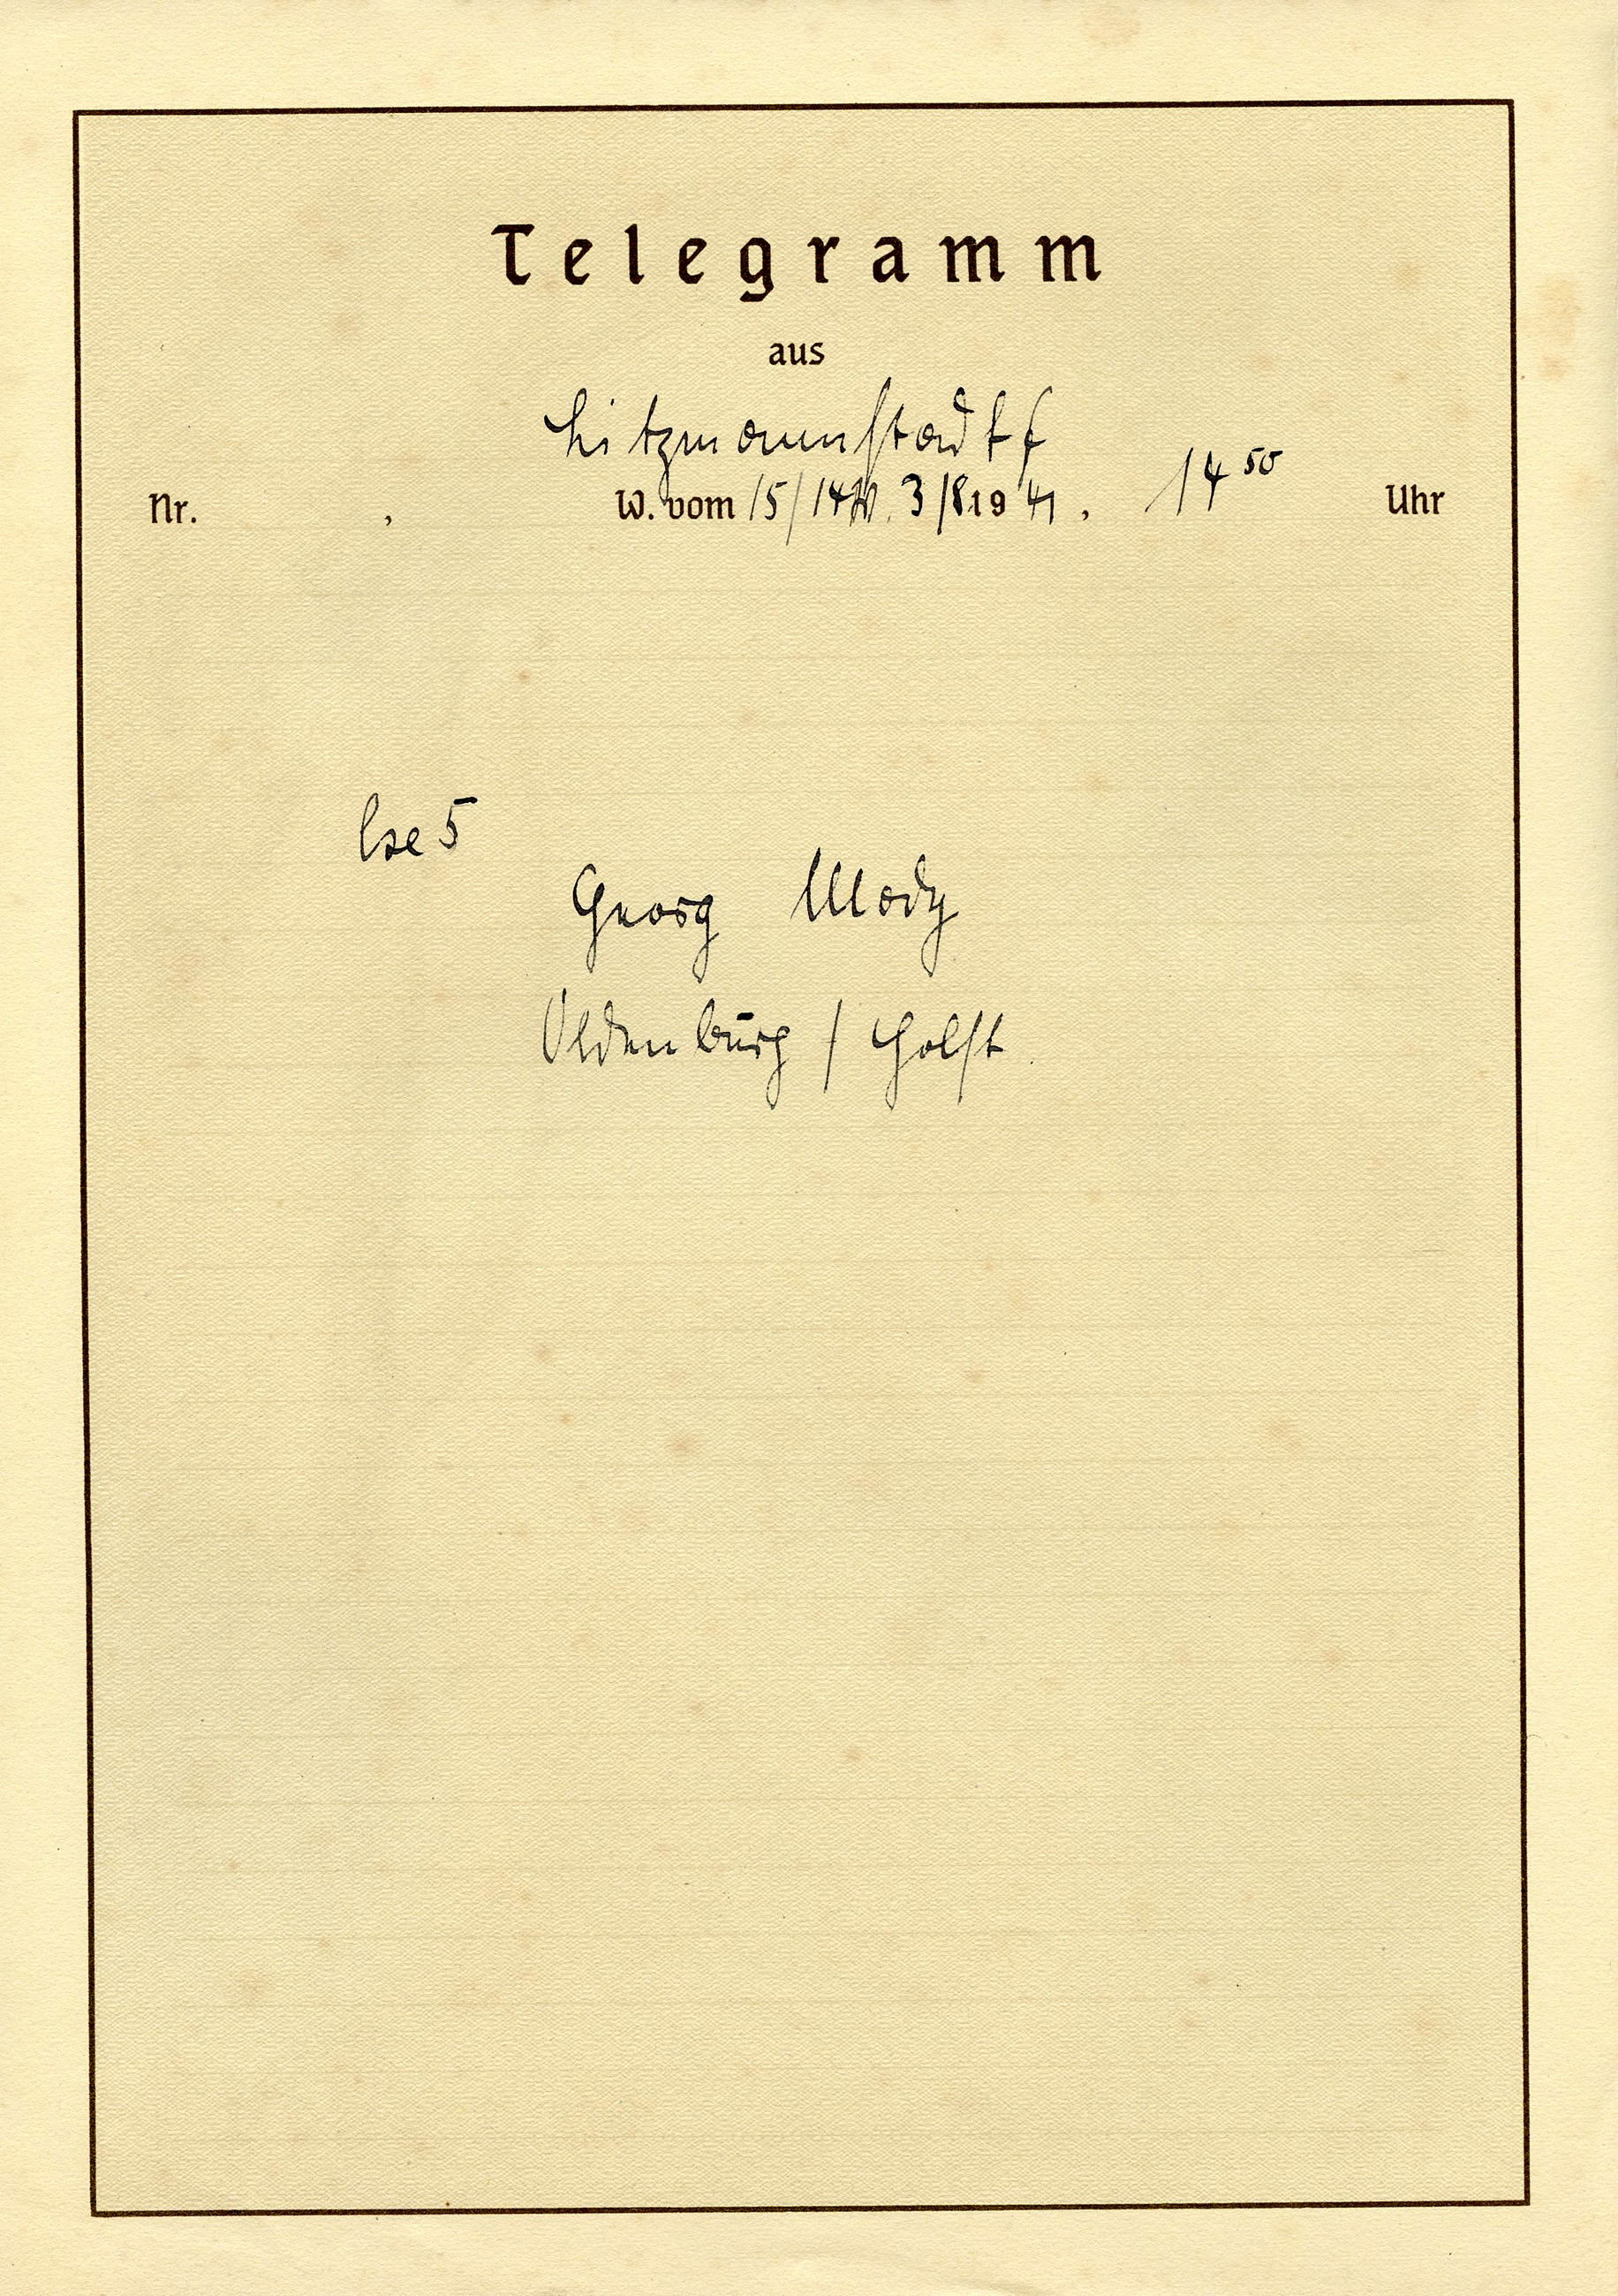 Telegramm
aus
Litzmannstadt f
Nr. , W. vom 15/14 W. 3/8 19 41, 14 50 Uhr
lxe 5
Georg Mody
Oldenburg / Holst